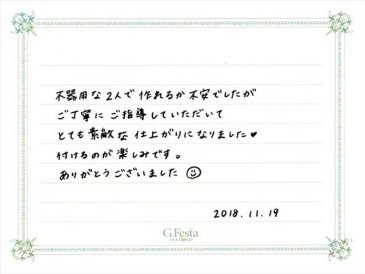 不器用な2人で作れるか不安でしたが
ご丁寧にご指導していただいて
とても素敵な仕上がりになりました♥
付けるのが楽しみです。
ありがとうございました☺
2018.11.19
G.Festa